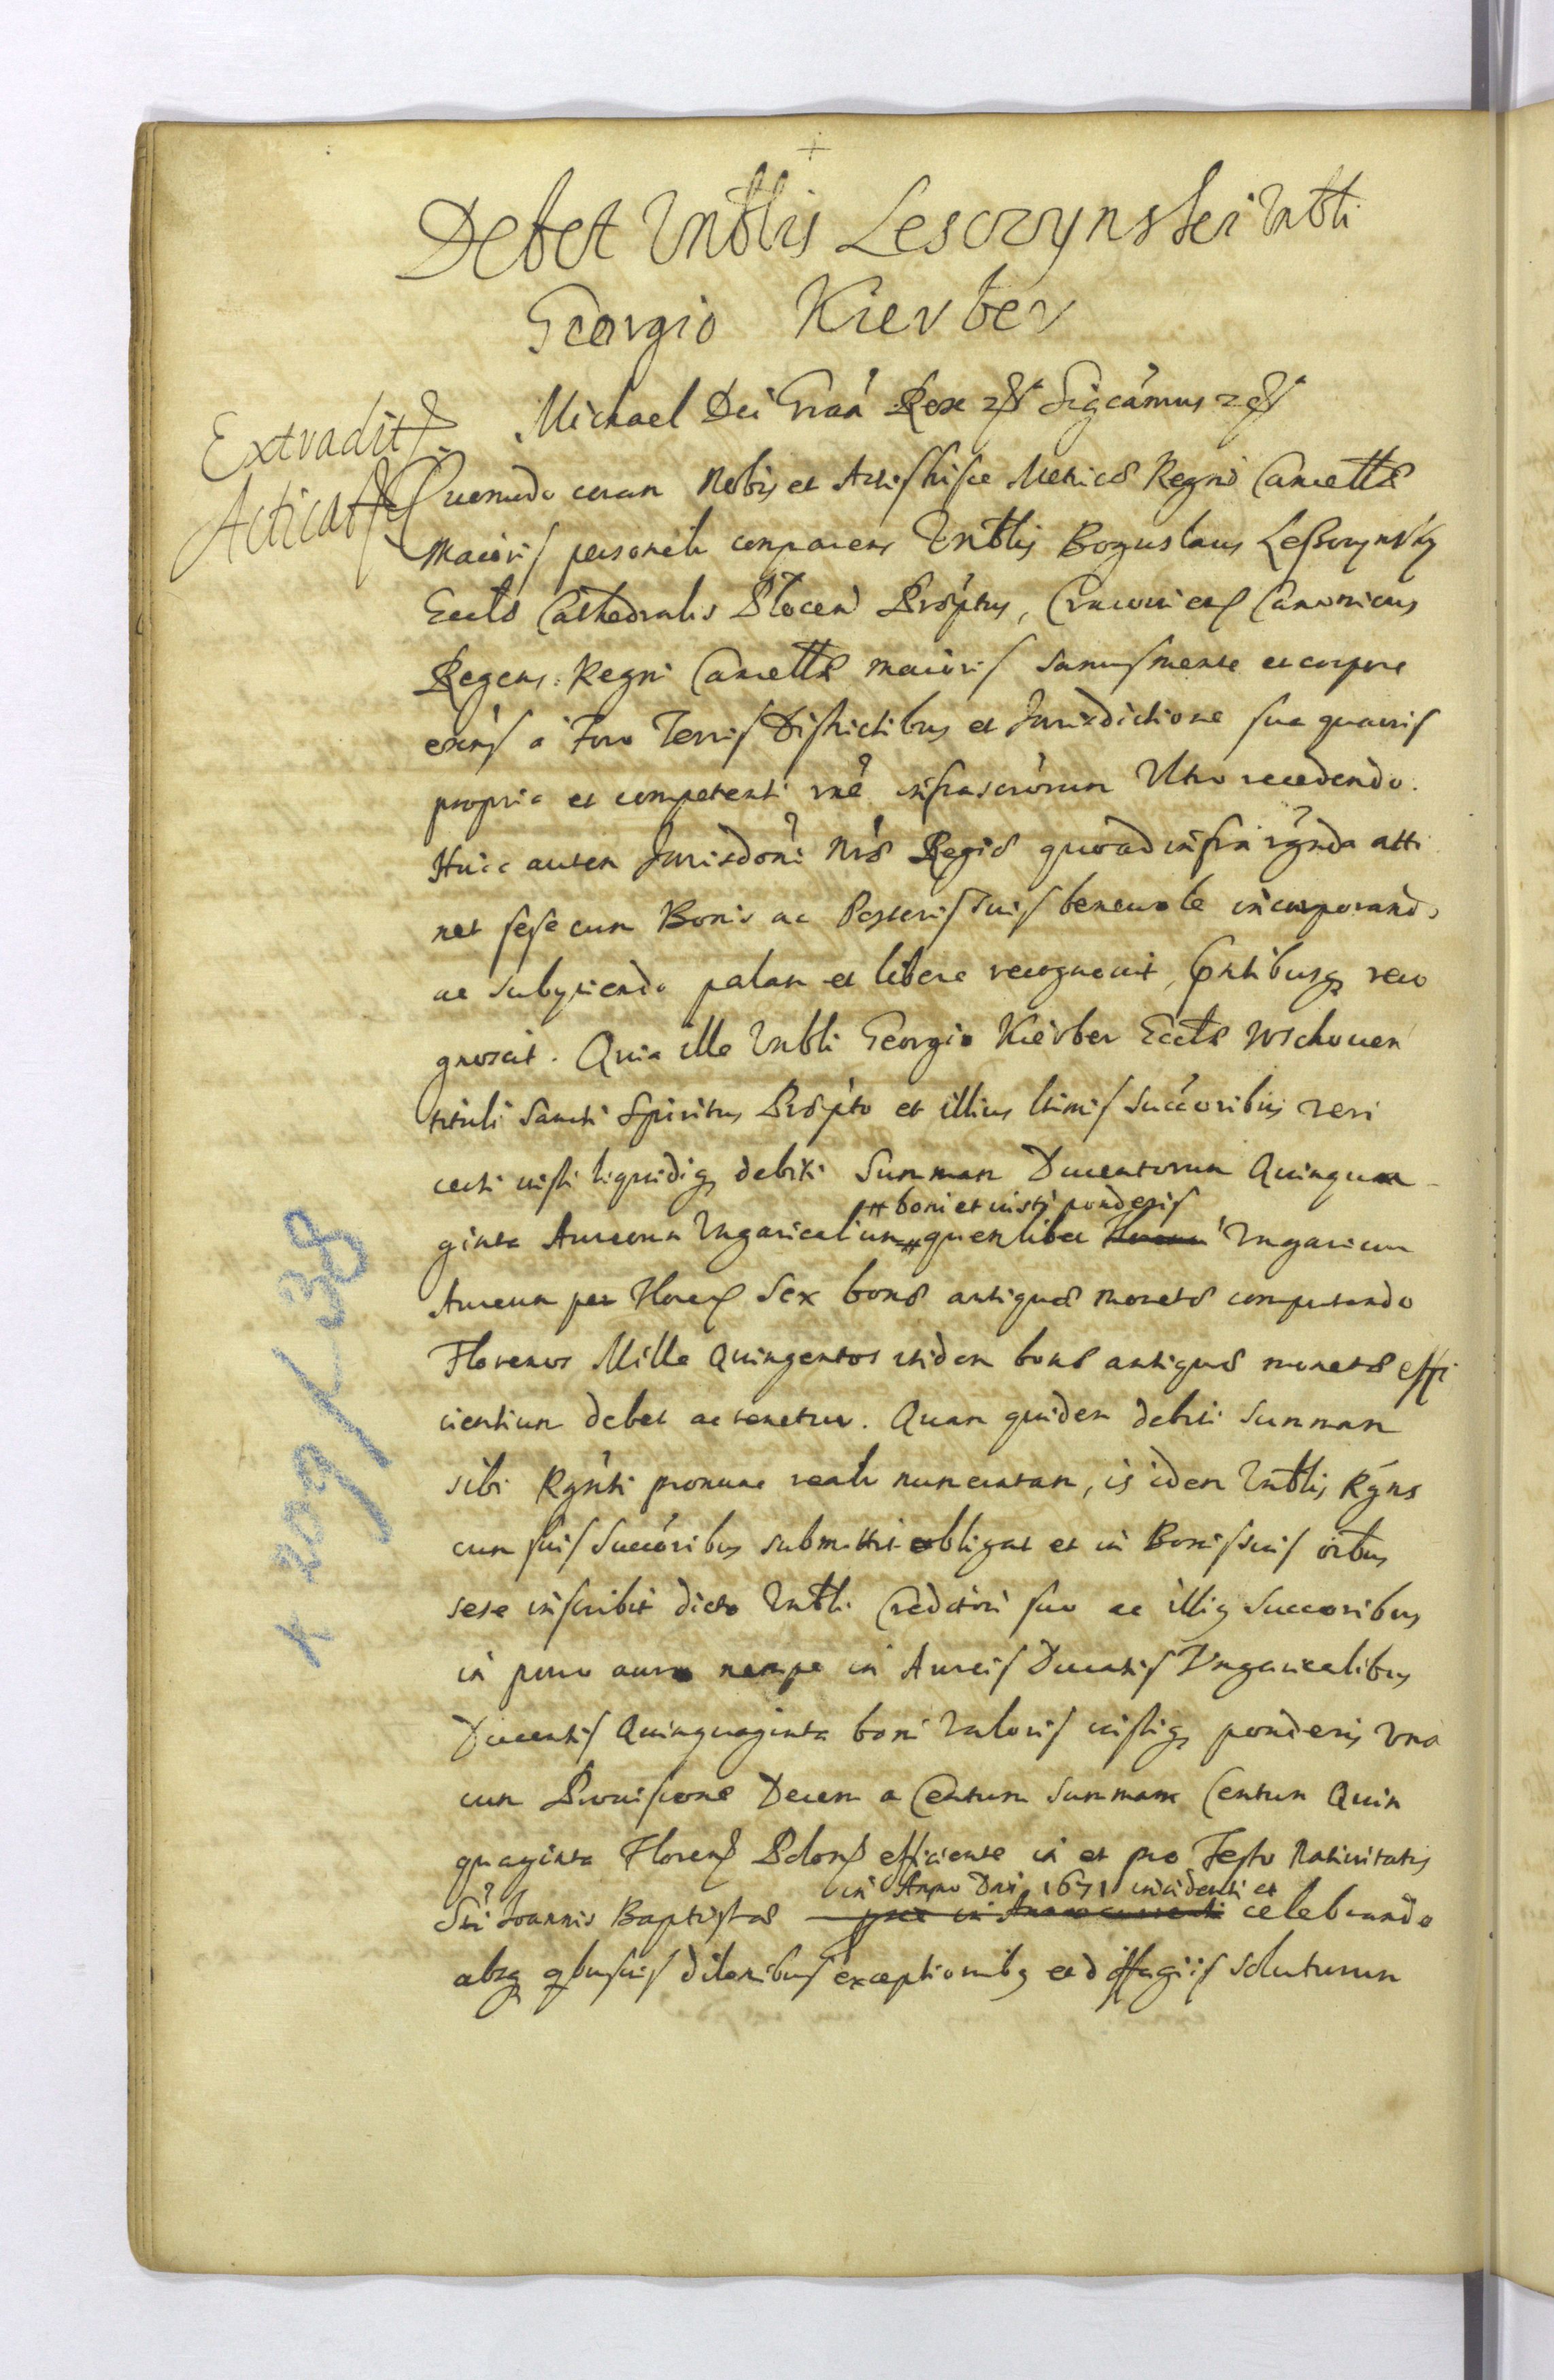 Debet Vnblis Lesczynskei Vnbli
Georgio Kierber
Michael Dei Graa Rex &c Sigcamus &c
Extradit
Acticat
Quomodo coram Nobis et Actis hisce Metricae Regni Cancellae
Maioris personalr comparens Vnblis Boguslaus Leszczynsky
Eccls Cathedralis Plocen Propstus, Cracovien Canonicus
Regens Regni Cancellae maioris sanus mente et corpore
exns à Foro Terris Districtibus et Jurisdictione sua quavis
propria et competenti rne infrascrorum Vltro recedendo.
Huic autem Jurisdoni Nrae Regiae quoad infra rgnda atti
net sese cum Bonis ac Posteris suis benevole incorporando
ac subyciendo palam et libere recognovit, pntibusq reco
gnoscit. Quia ille Vnbli Georgio Kierber Eccls Wschoven
tituli Sancti Spiritus Propto et illius ltimis succoribus veri
certi iusti liquidiq debiti Summam Ducentorum Quinqua
# boni et iusti ponderis
ginta Aureorum Vngaricalium # quemlibet Vngaricum
Aureum per Floren Sex bonae antiquae monetae computando
Florenos Mille Quingentos itidem bonae antiquae monetae effi
cientium debet ac tenetur. Quam quidem debiti summam
sibi Rgnti pronunc realr numeratam, is idem Vnblis Rgns
cum suis succoribus submittit obligat et in Bonis suis oibus
sese inscribit dicto Vnbli Creditori suo ac illig succoribus
in puro auro nempe in Aureis Ducatis Vngaricalibus
Ducentis Quinquaginta boni valoris iustiq ponderis vna
cum Provisione Decem a Centum summam Centum Quin
quaginta Floren Polon efficiente in et pro Festo Nativitatis
in Anno Dni 1671 incidenti et
Sti Joannis Baptistae celebrando
absq qbusvis dilonibus exceptionibq et diffugiis soluturum
K 209 K 38